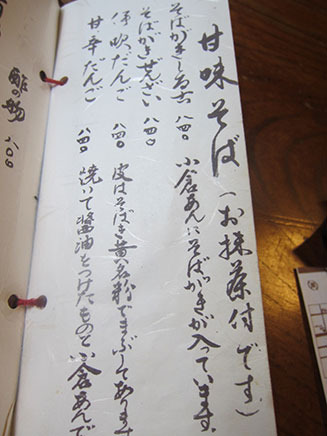 甘味そば(お抹茶付です)
そばがきしるこ 八四〇
小倉あんにそばがきが入っています。
そばがきぜんざい 八四〇
伊吹だんご 八四〇
皮はそばき黄名粉でまぶしてあります
甘辛だんご 八四〇
焼いて醤油をつけたものと小倉あんで
酢の物 八〇〇